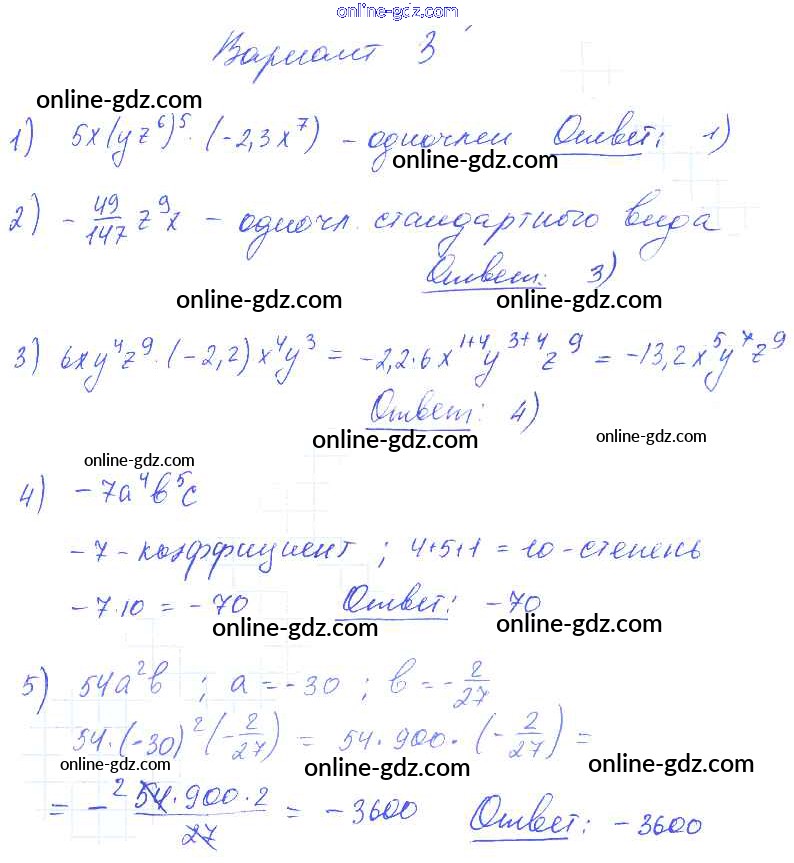 online-gdz.com
Вариант 3
online-gdz.com
1) 5x(yz⁶)⁵·(-2,3x⁷) - одночлен Ответ: 1)
online-gdz.com
2) -49/147 z⁹x - одночл. стандартного вида
Ответ: 3)
online-gdz.com online-gdz.com
3) 6xy⁴z⁹·(-2,2)x⁴y³ = -2,2·6x¹⁺⁴y³⁺⁴z⁹ = -13,2x⁵y⁷z⁹
Ответ: 4)
online-gdz.com online-gdz.com
online-gdz.com
4) -7a⁴b⁵c
-7 - коэффициент ; 4+5+1 = 10 - степень
-7·10 = -70 Ответ: -70
online-gdz.com online-gdz.com
5) 54a²b ; a = -30 ; b = -2/27
54·(-30)²(-2/27) = 54·900·(-2/27) =
online-gdz.com online-gdz.com online-gdz.com
= -² 54·900·2/27 = -3600 Ответ: -3600